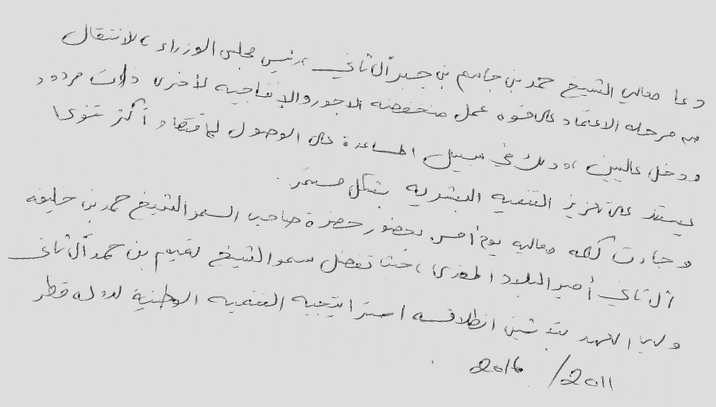 دعا معالي الشيخ حمد بن جاسم بن جبر آل ثاني ، رئيس مجلس الوزراء ، للانتقال
من مرحلة الاعتماد على قوة عمل منخفضة الاجور والإنتاجيه لأخرى ذات مردود
ودخل عاليين ، وذلك في سبيل المساعدة على الوصول لاقتصاد أكثر تنوعا
يستند على تعزيز التنمية البشريه بشكل مستمر .
وجاءت كلمه معاليه يوم أمس بحضور حضرة صاحب السمو الشيخ حمد بن خليفه
آل ثاني أمير البلاد المفدى ، حيث تفضل سمو الشيخ تميم بن حمد آل ثاني
ولي العهد بتدشين انطلاقه استراتيجيه التنميه الوطنية لدوله قطر
2011 / 2016 .